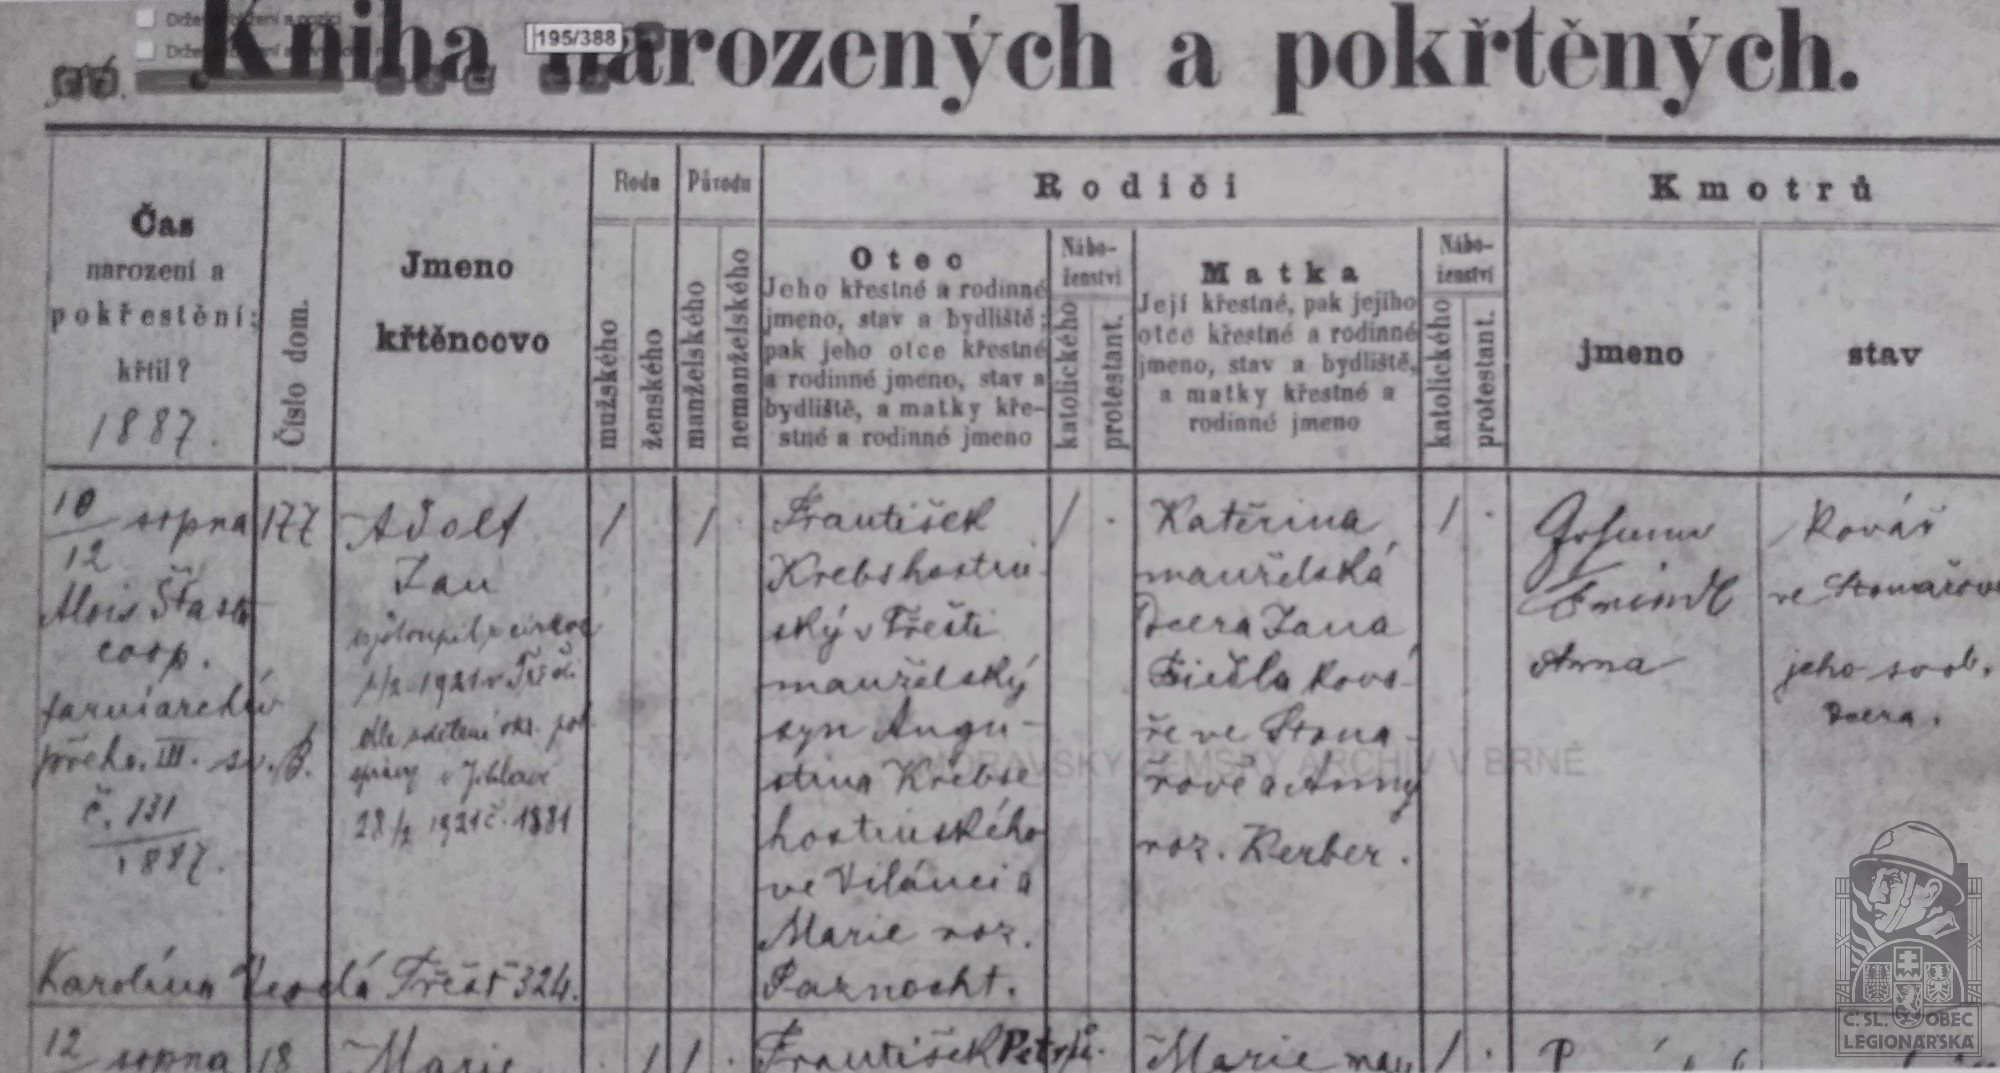 Kniha narozených a pokřtěných.
195/388
Čas
narození a
pokřestění;
křtil?
1887.
Číslo dom.
Jmeno
křtěncovo
Rodu
mužského
ženského
Původu
manželského
nemanželského
Rodiči
Otec
Jeho křestné a rodinné
jmeno, stav a bydliště;
pak jeho otce křestné
a rodinné jmeno, stav a
bydliště, a matky kře-
stné a rodinné jmeno
Nábo-
ženství
katolického
protestant.
Matka
Její křestné, pak jejího
otce křestné a rodinné
jmeno, stav a bydliště,
a matky křestné a
rodinné jmeno
Nábo-
ženství
katolického
protestant.
Kmotrů
jmeno
stav
10/12 srpna
Alois Šťast
coop.
farní archiv
přeho. III. sv. B.
č. 131
1887.
177
Adolf
Jan
vystoupil z církve
1/2 1921 v Třešti
dle sdělení okr. pol
správy v Jihlavě
28/2 1921 č. 1881
/
/
František
Krebshostin
ský v Třešti
manželský
syn Augu-
stina Krebse
hostinského
ve Vílánci a
Marie roz.
Paznocht.
/ .
Kateřina
manželská
dcera Jana
Fiedla ková
ře ve Stona-
řově a Anny
roz. Kerber.
/ .
Anna
Kovář
ve Stonařově
jeho svob.
dcera.
Karolína Veselá Třešť 324.
12 srpna
18
Marie
. / / .
František Petrů.
Marie man
/ .
MORAVSKÝ ZEMSKÝ ARCHIV V BRNĚ
Č. SL. OBEC
LEGIONÁŘSKÁ